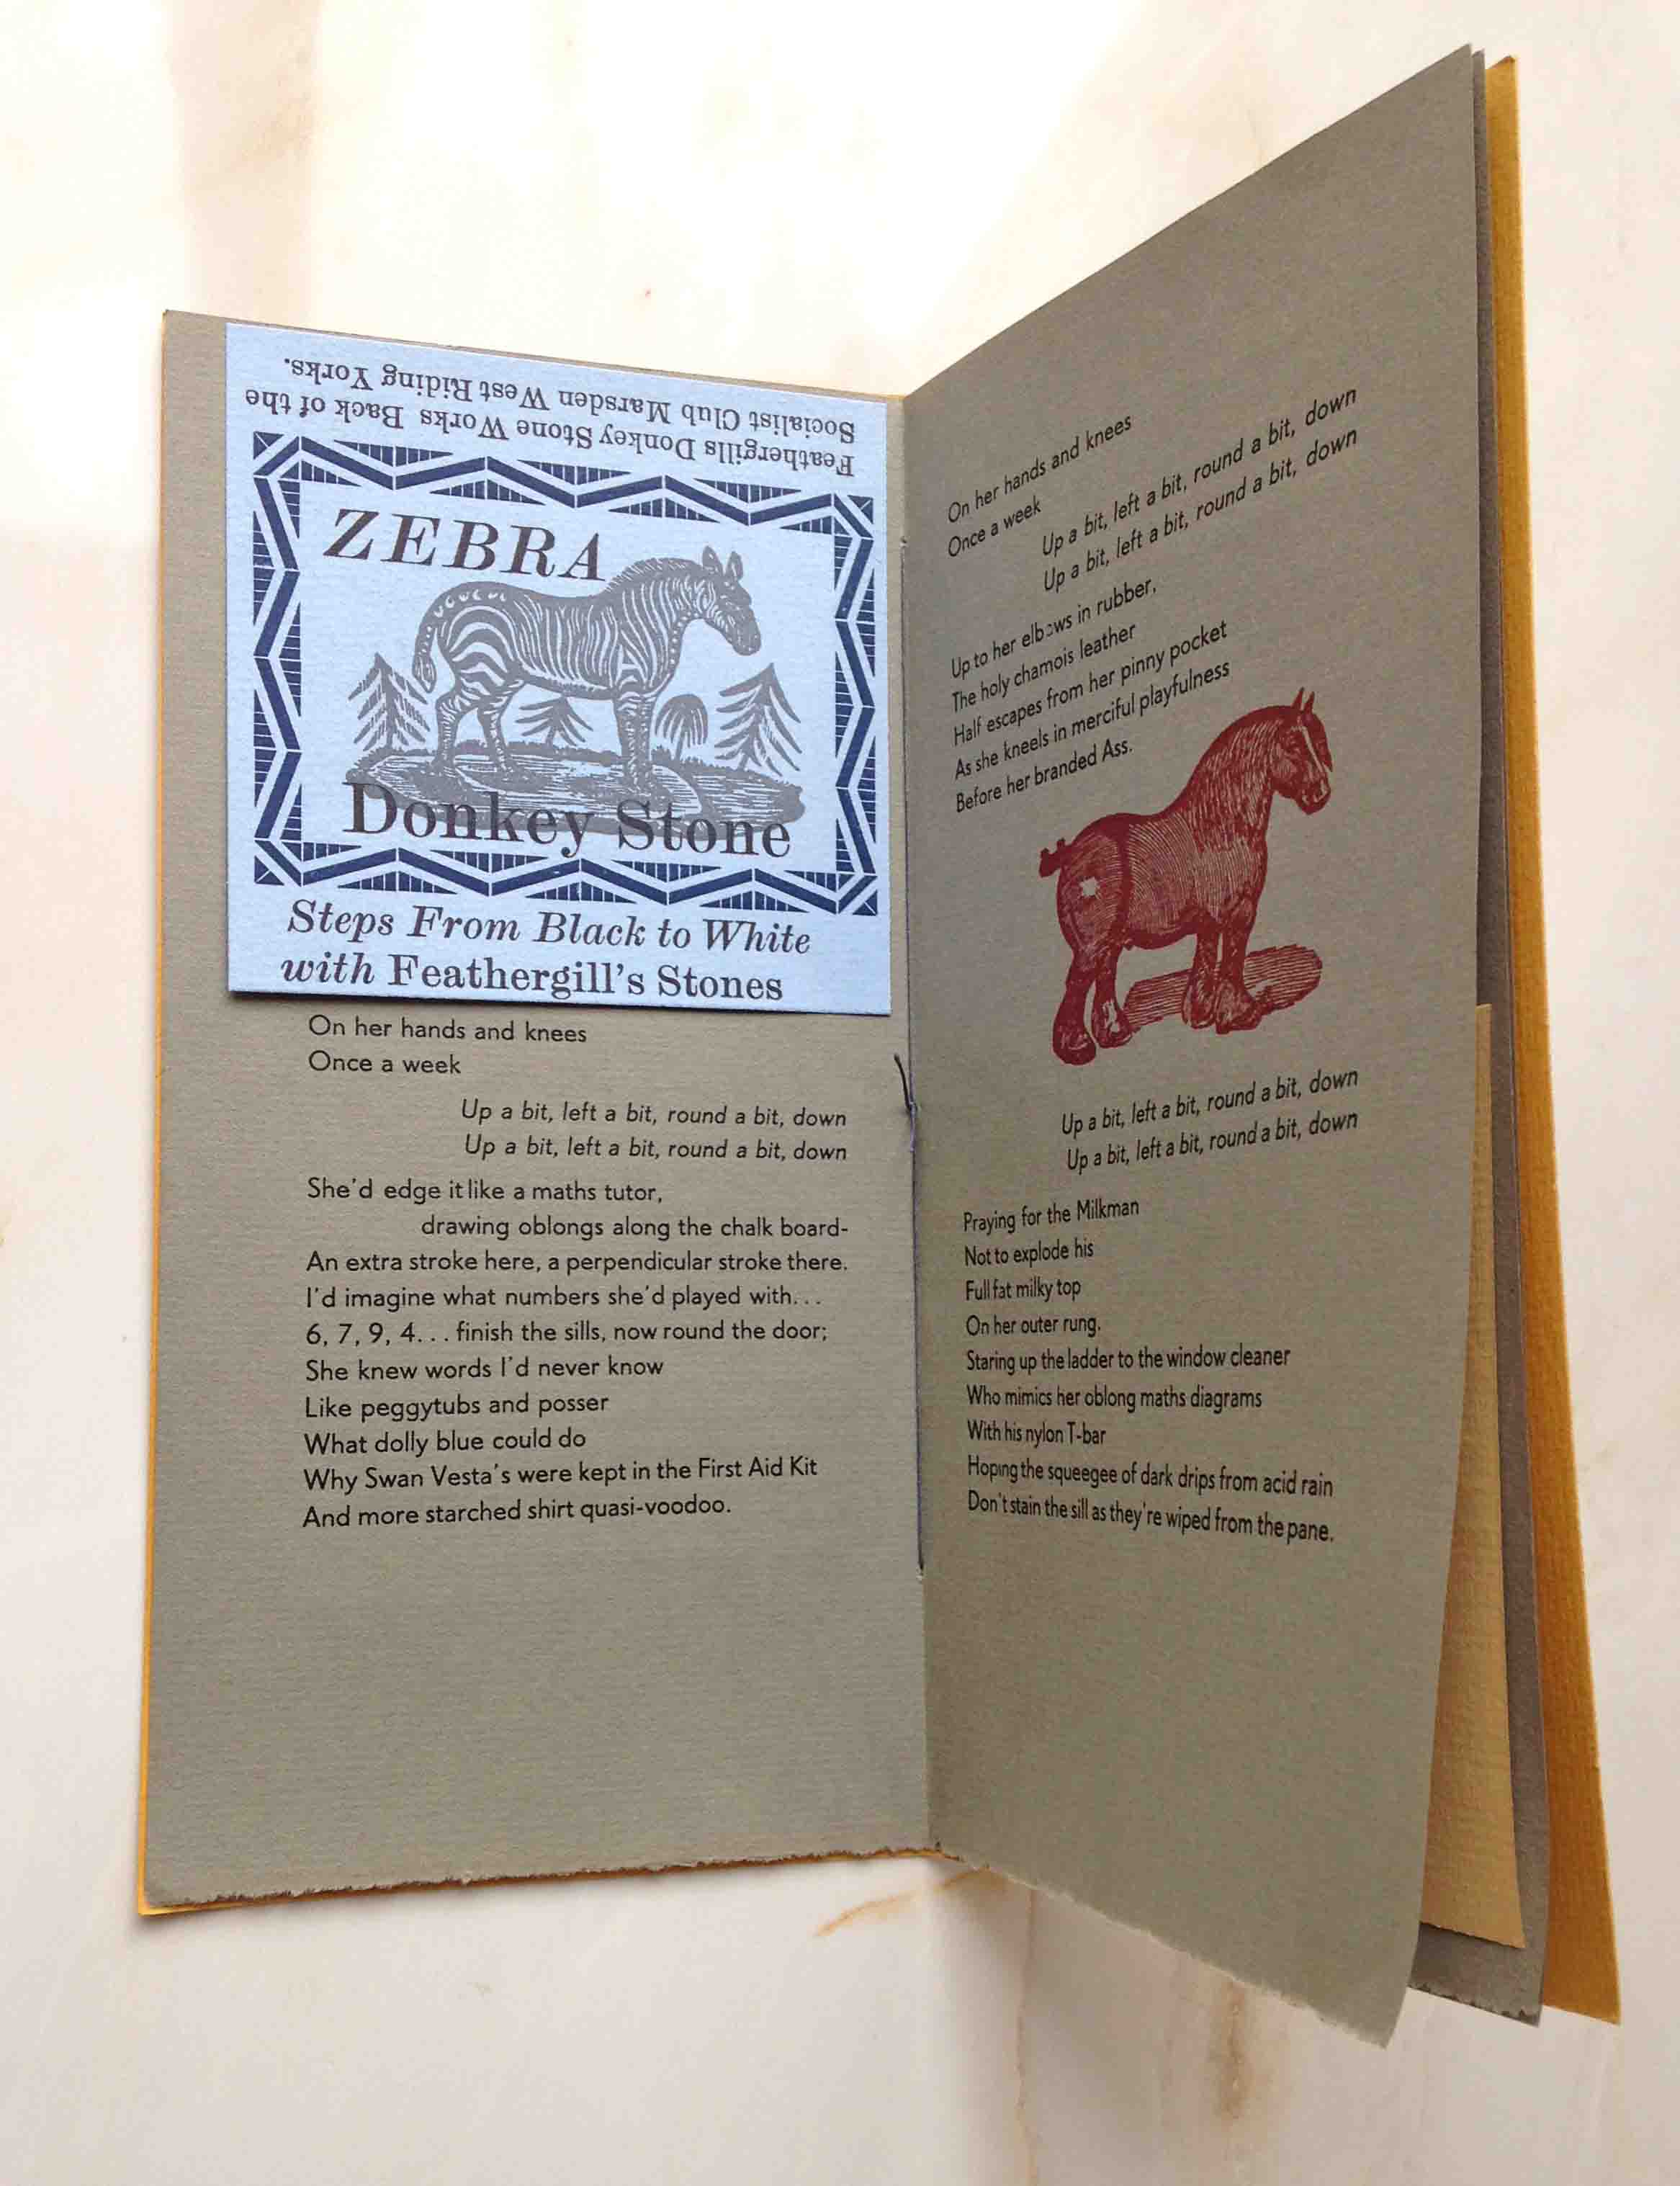 Feathergills Donkey Stone Works Back of the
Socialist Club Marsden West Riding Yorks.
ZEBRA
Donkey Stone
Steps From Black to White
with Feathergill's Stones
On her hands and knees
Once a week
Up a bit, left a bit, round a bit, down
Up a bit, left a bit, round a bit, down
She'd edge it like a maths tutor,
drawing oblongs along the chalk board-
An extra stroke here, a perpendicular stroke there.
I'd imagine what numbers she'd played with...
6, 7, 9, 4... finish the sills, now round the door;
She knew words I'd never know
Like peggytubs and posser
What dolly blue could do
Why Swan Vesta's were kept in the First Aid Kit
And more starched shirt quasi-voodoo.
On her hands and knees
Once a week
Up a bit, left a bit, round a bit, down
Up a bit, left a bit, round a bit, down
Up to her elbows in rubber,
The holy chamois leather
Half escapes from her pinny pocket
As she kneels in merciful playfulness
Before her branded Ass.
Up a bit, left a bit, round a bit, down
Up a bit, left a bit, round a bit, down
Praying for the Milkman
Not to explode his
Full fat milky top
On her outer rung.
Staring up the ladder to the window cleaner
Who mimics her oblong maths diagrams
With his nylon T-bar
Hoping the squeegee of dark drips from acid rain
Don't stain the sill as they're wiped from the pane.